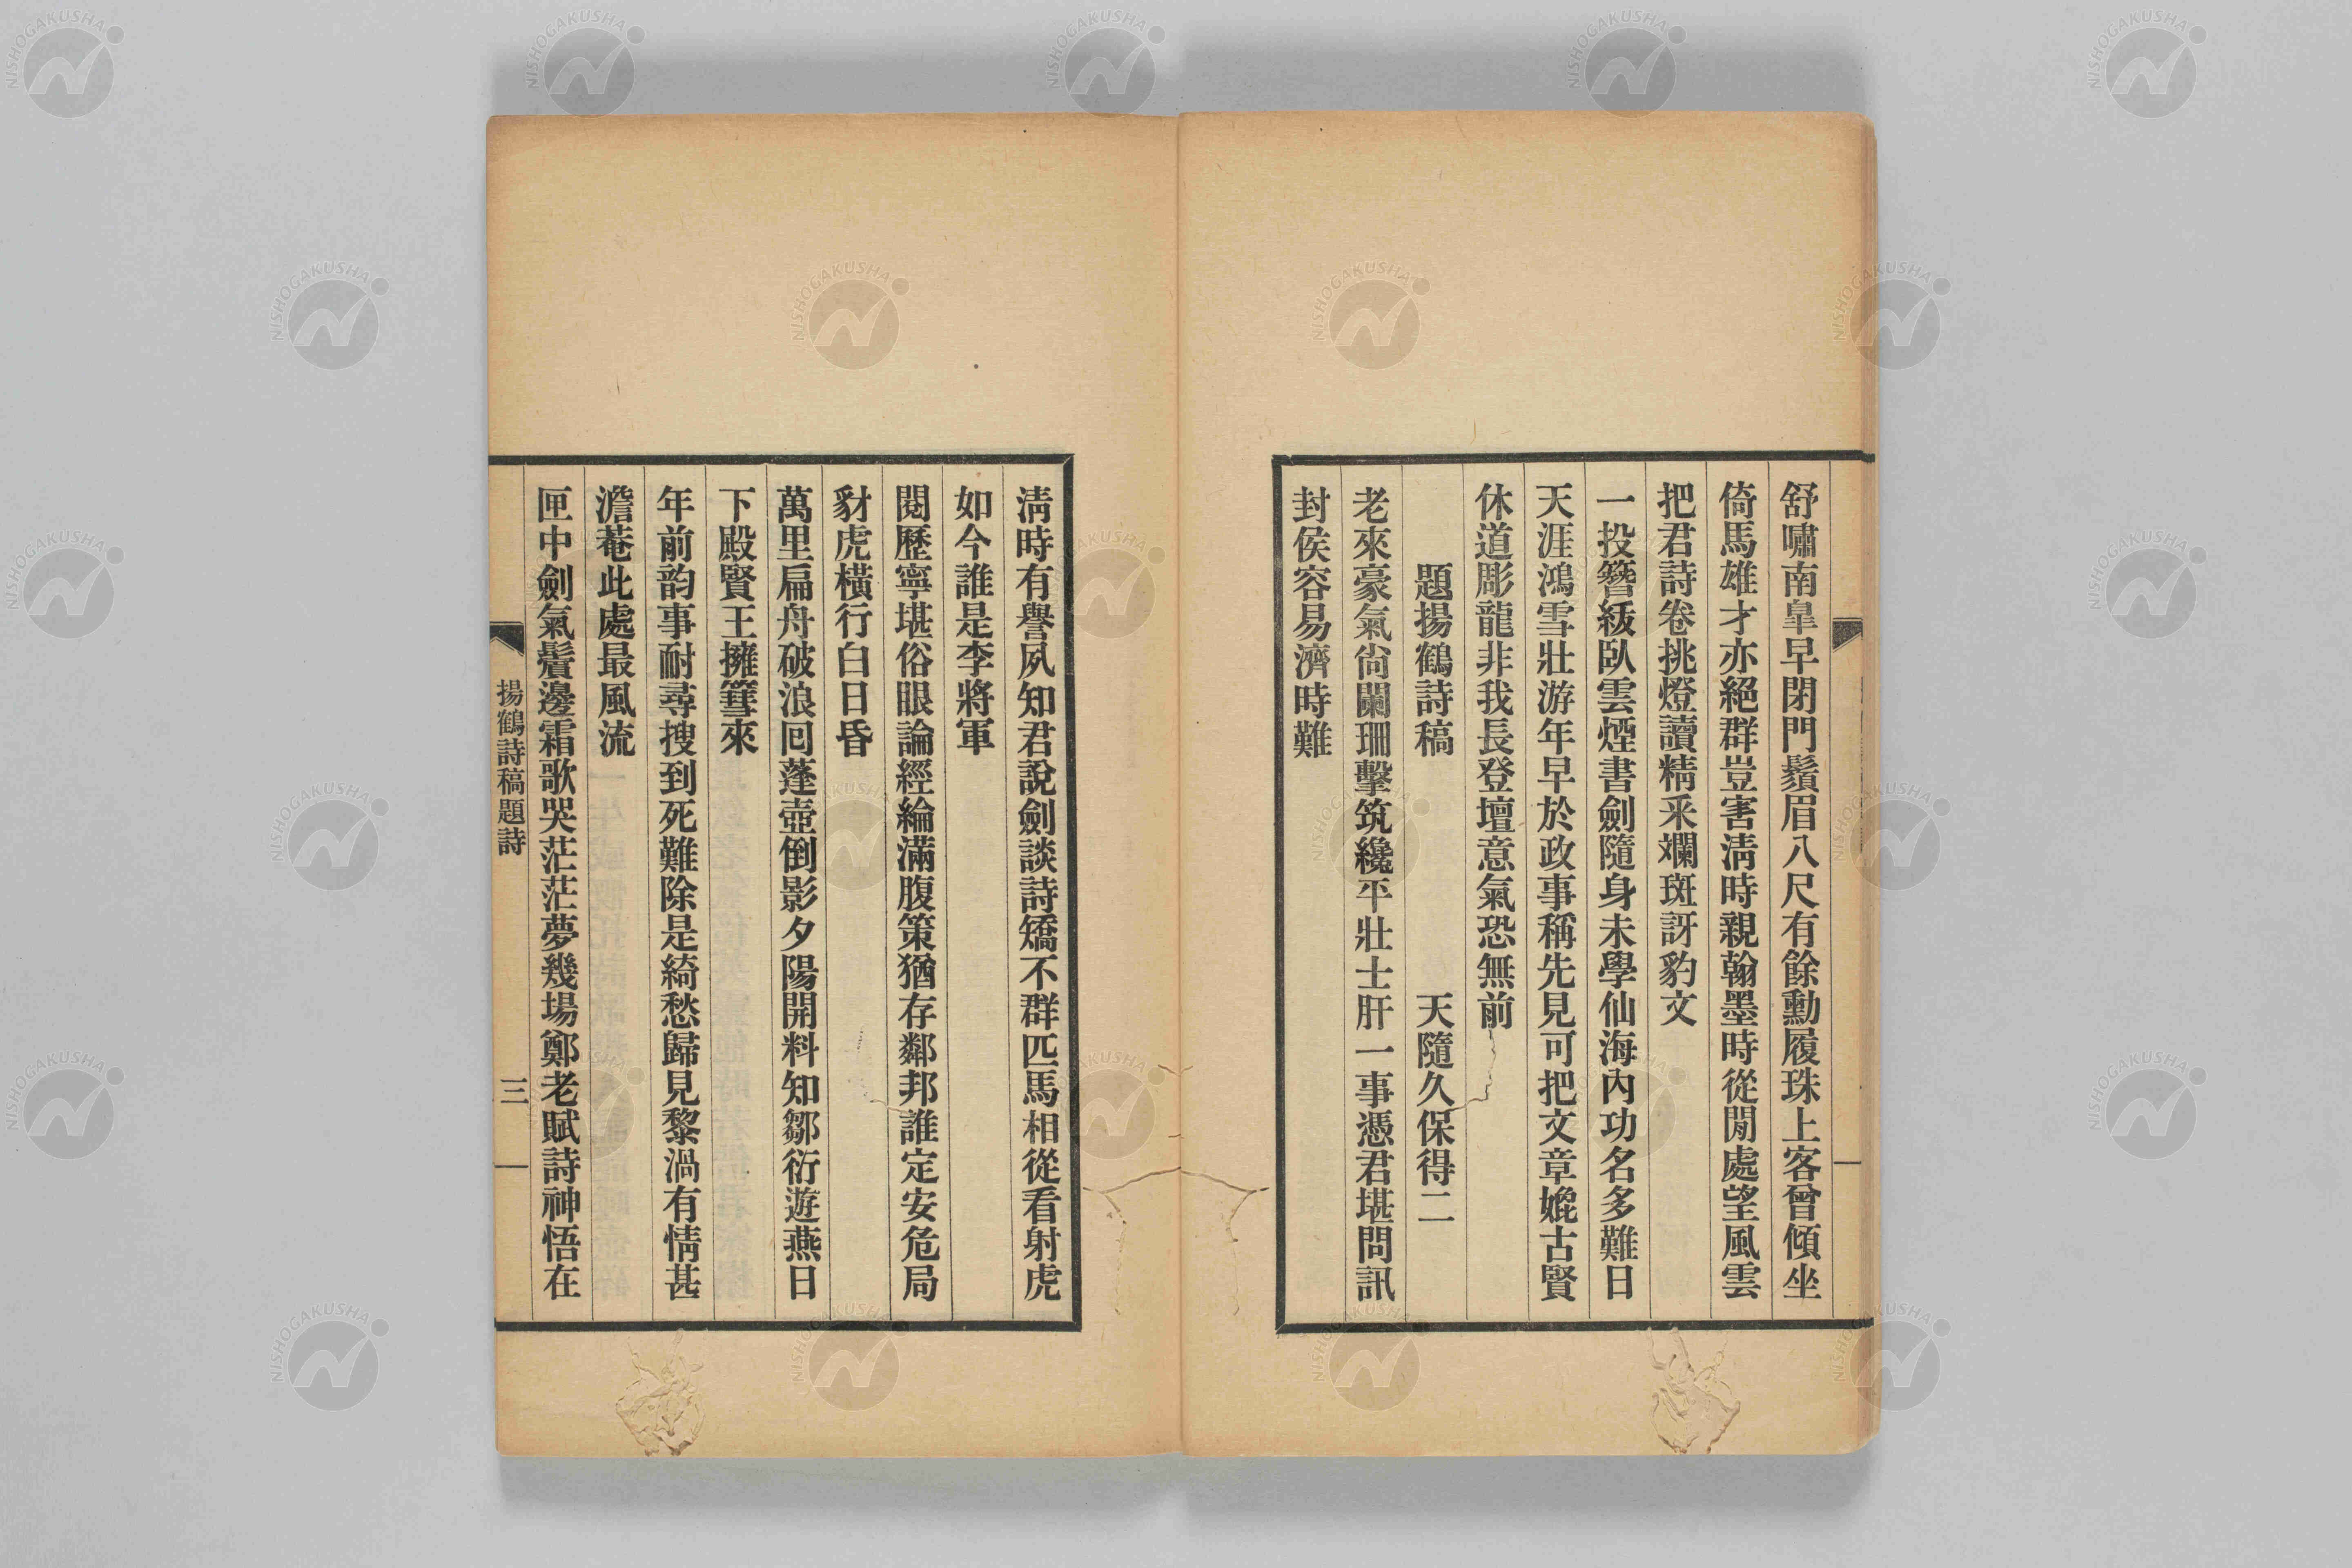 舒嘯南皐早閉門鬚眉八尺有餘勳履珠上客曾傾坐
倚馬雄才亦絕群豈害淸時親翰墨時從閒處望風雲
把君詩卷挑燈讀精釆斕斑訝豹文
一投簪紱臥雲煙書劍隨身未學仙海內功名多難日
天涯鴻雪壯游年早於政事稱先見可把文章媲古賢
休道彫龍非我長登壇意氣恐無前
題揚鶴詩稿 天隨久保得二
老來豪氣尙闌珊擊筑纔平壯士肝一事憑君堪問訊
封侯容易濟時難
淸時有譽夙知君說劍談詩矯不群匹馬相從看射虎
如今誰是李將軍
閱歷寧堪俗眼論經綸滿腹策猶存鄰邦誰定安危局
豺虎橫行白日昏
萬里扁舟破浪回蓬壺倒影夕陽開料知鄒衍遊燕日
下殿賢王擁篲來
年前韵事耐尋搜到死難除是綺愁歸見黎渦有情甚
澹菴此處最風流
匣中劍氣鬢邊霜歌哭茫茫夢幾場鄭老賦詩神悟在
揚鶴詩稿題詩
三
NISHOGAKUSHA